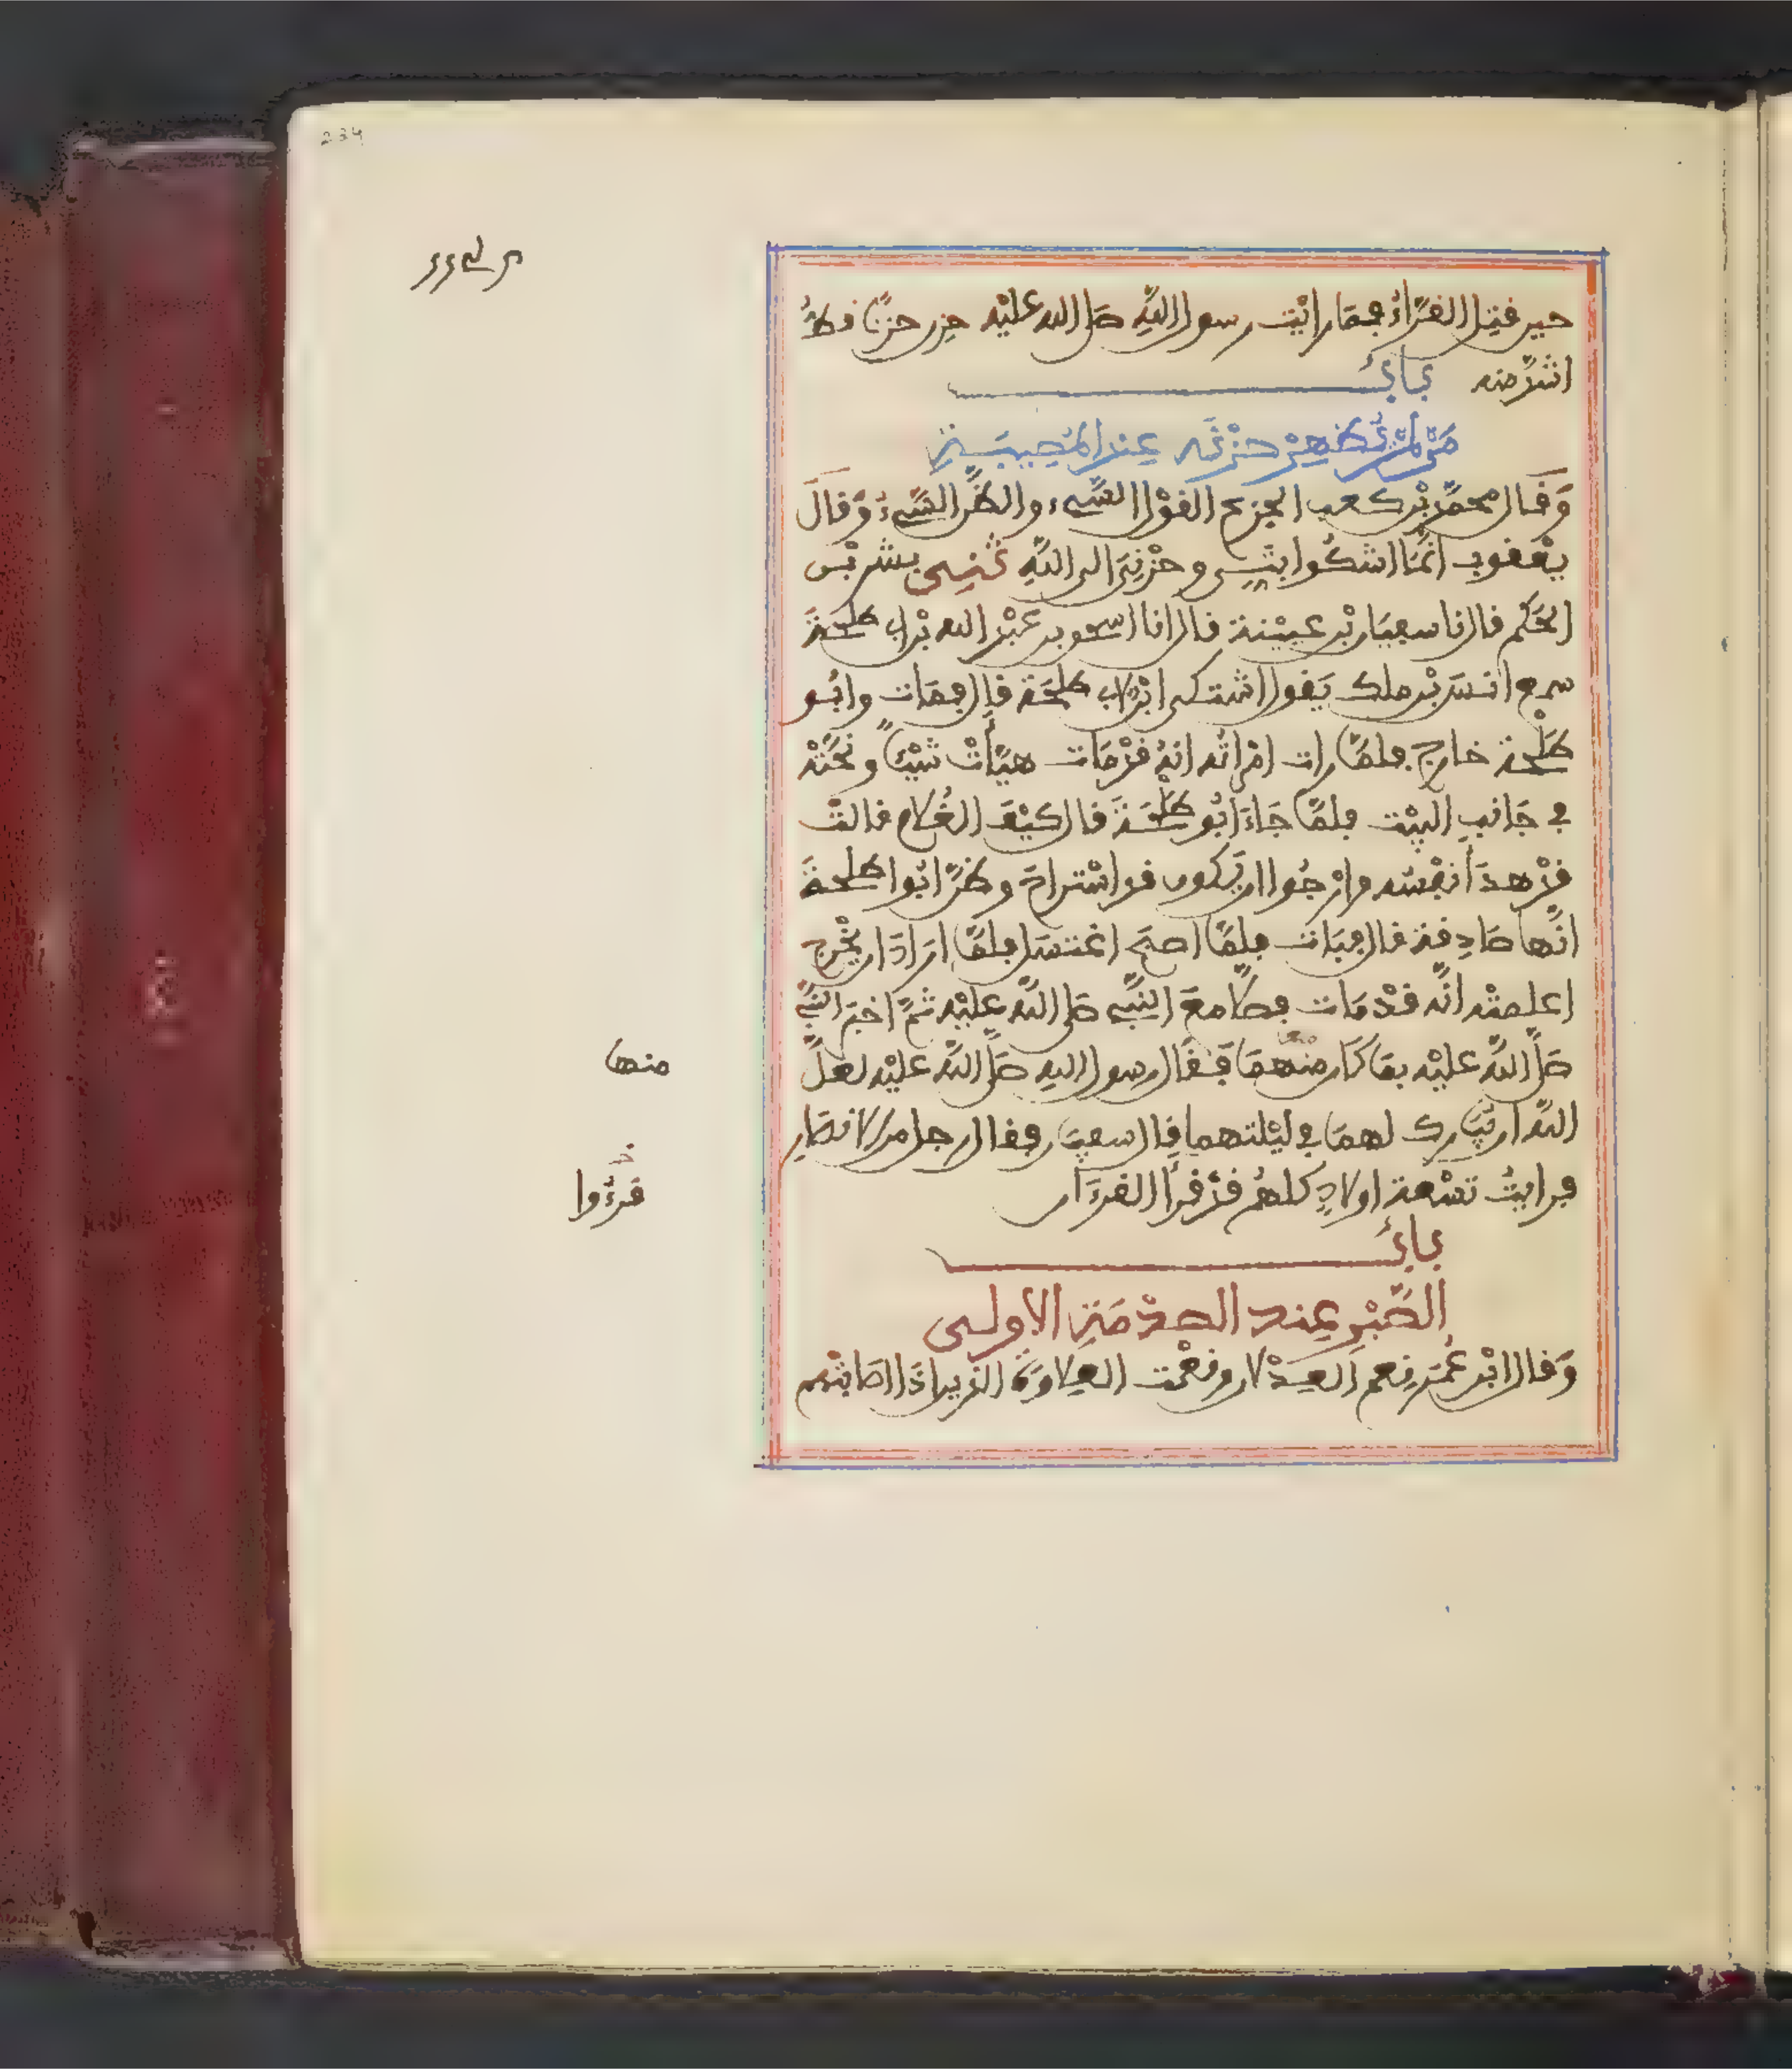 234
حين قتل القرّاء فما رايْت رسول اللّه صلى الله عليْه حزن حزنًا قطُّ
اشدّ منه بابٌ
مَن لمْ يُظهِرْ حزْنَه عِند المُصِيبَةِ
وَقَال محمّد بْن كعب الجزع القوْل السَّيء والظنّ السَّيء وَقالَ
يعْقوب انّمَا اشكُوا بثِّى وحزْنِىَ الى اللَّهِ ثنى بشر بْن
الحَكم قال نا سفيَان بْن عيينة قال انا اسحٰق بن عبْد الله بْن ابى طلحةَ
سمع انسَ بْن ملك يَقول اشتكى ابْن لابى طلحَة قال فمَات وابُو
طلْحة خارج فلمّا رات امْراتُه انهُ قدْ مَات هيّأتْ شيْئًا ونحّتْه
فى جَانب البيْت فلمّا جَاءَ ابُو طلحَةَ قال كيْفَ الغُلام قالتْ
قدْ هدَأ نفْسُه وارْجُوا ان يَكون قد اسْتراحَ وظنّ ابُوا طلحةَ
انّها صَادِقة قال فبَات فلمّا اصبَح اغتسَل فلمّا ارَادَ ان يخْرج
اعلمتْه انّه قدْ مَات فصلّا معَ النبّى صلى اللّه عليْه ثمّ اخبَر النبّى
صَلّى اللّه عليْه بمَا كَان منْهمَا فَقَال رسول اللهِ صَلّى اللّه عليْه لعَلّ
اللّه ان يُبَارك لهمَا فى ليْلتهما قال سفيَان فقال رجل من الانصَارِ
فرايتُ تسْعة اولادٍ كلهُم قدْ قرأ القرءَان
منها
قرءُوا
بابٌ
الصَّبْرِ عِند الصدْمَةِ الاولى
وَقال ابْن عُمَر نِعم العِدْلان ونعْمت العِلاوَةُ الذين اذا اصَابتْهم